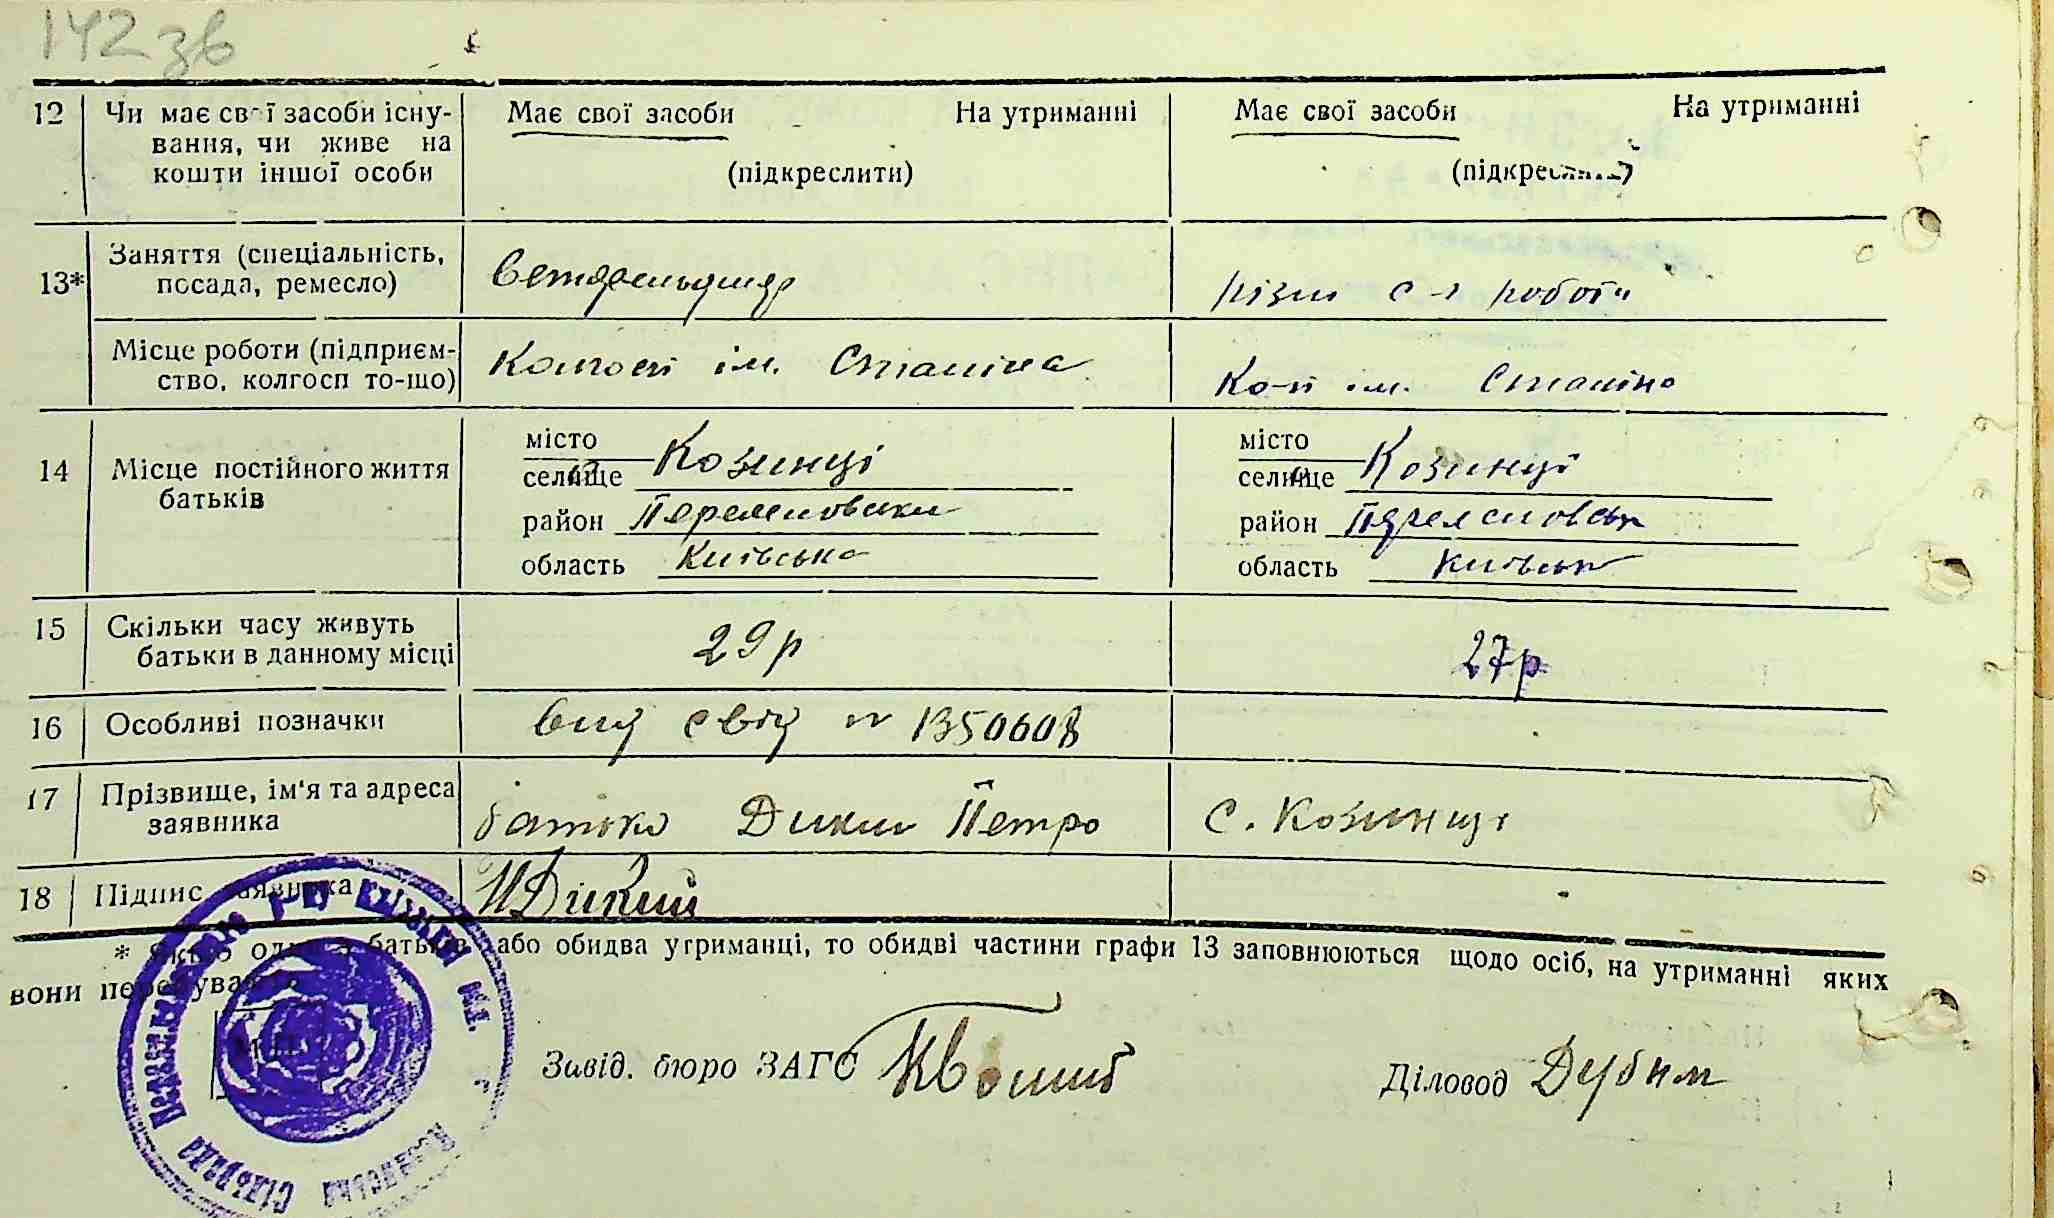 142 зв
12 Чи має свої засоби існу- Має свої засоби На утриманні Має свої засоби На утриманні
вання, чи живе на
кошти іншої особи (підкреслити) (підкреслити)
Заняття (спеціальність,
13* посада, ремесло) Ветфельдшер різні с-г роботи
Місце роботи (підприєм- Колгосп ім. Сталіна Ко-п ім. Сталіна
ство, колгосп то-що)
місто місто
14 Місце постійного життя селище Козинці селище Козинці
батьків
район район
область Київська область Київськ
15 Скільки часу живуть 29 р 27 р
батьки в данному місці
16 Особливі позначки вид свід № 1350608
17 Прізвище, ім'я та адреса
заявника батько Дикий Петро с. Козинці
18 Підпис заявника ПДикий
* Якщо один з батьків або обидва утриманці, то обидві частини графи 13 заповнюються щодо осіб, на утриманні яких
вони перебувають
Завід. бюро ЗАГС Діловод
Сільрада